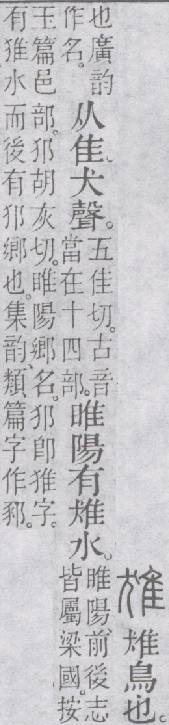 猚鳥也。
也廣韵
作名。
从隹犬聲。
五佳切。古音
當在十四部。
睢陽有猚水。
睢陽、前後志
皆屬梁國。按
玉篇邑部。胡灰切。睢陽鄉名。即猚字。
有猚水而後有鄉也。集韵、類篇字作。